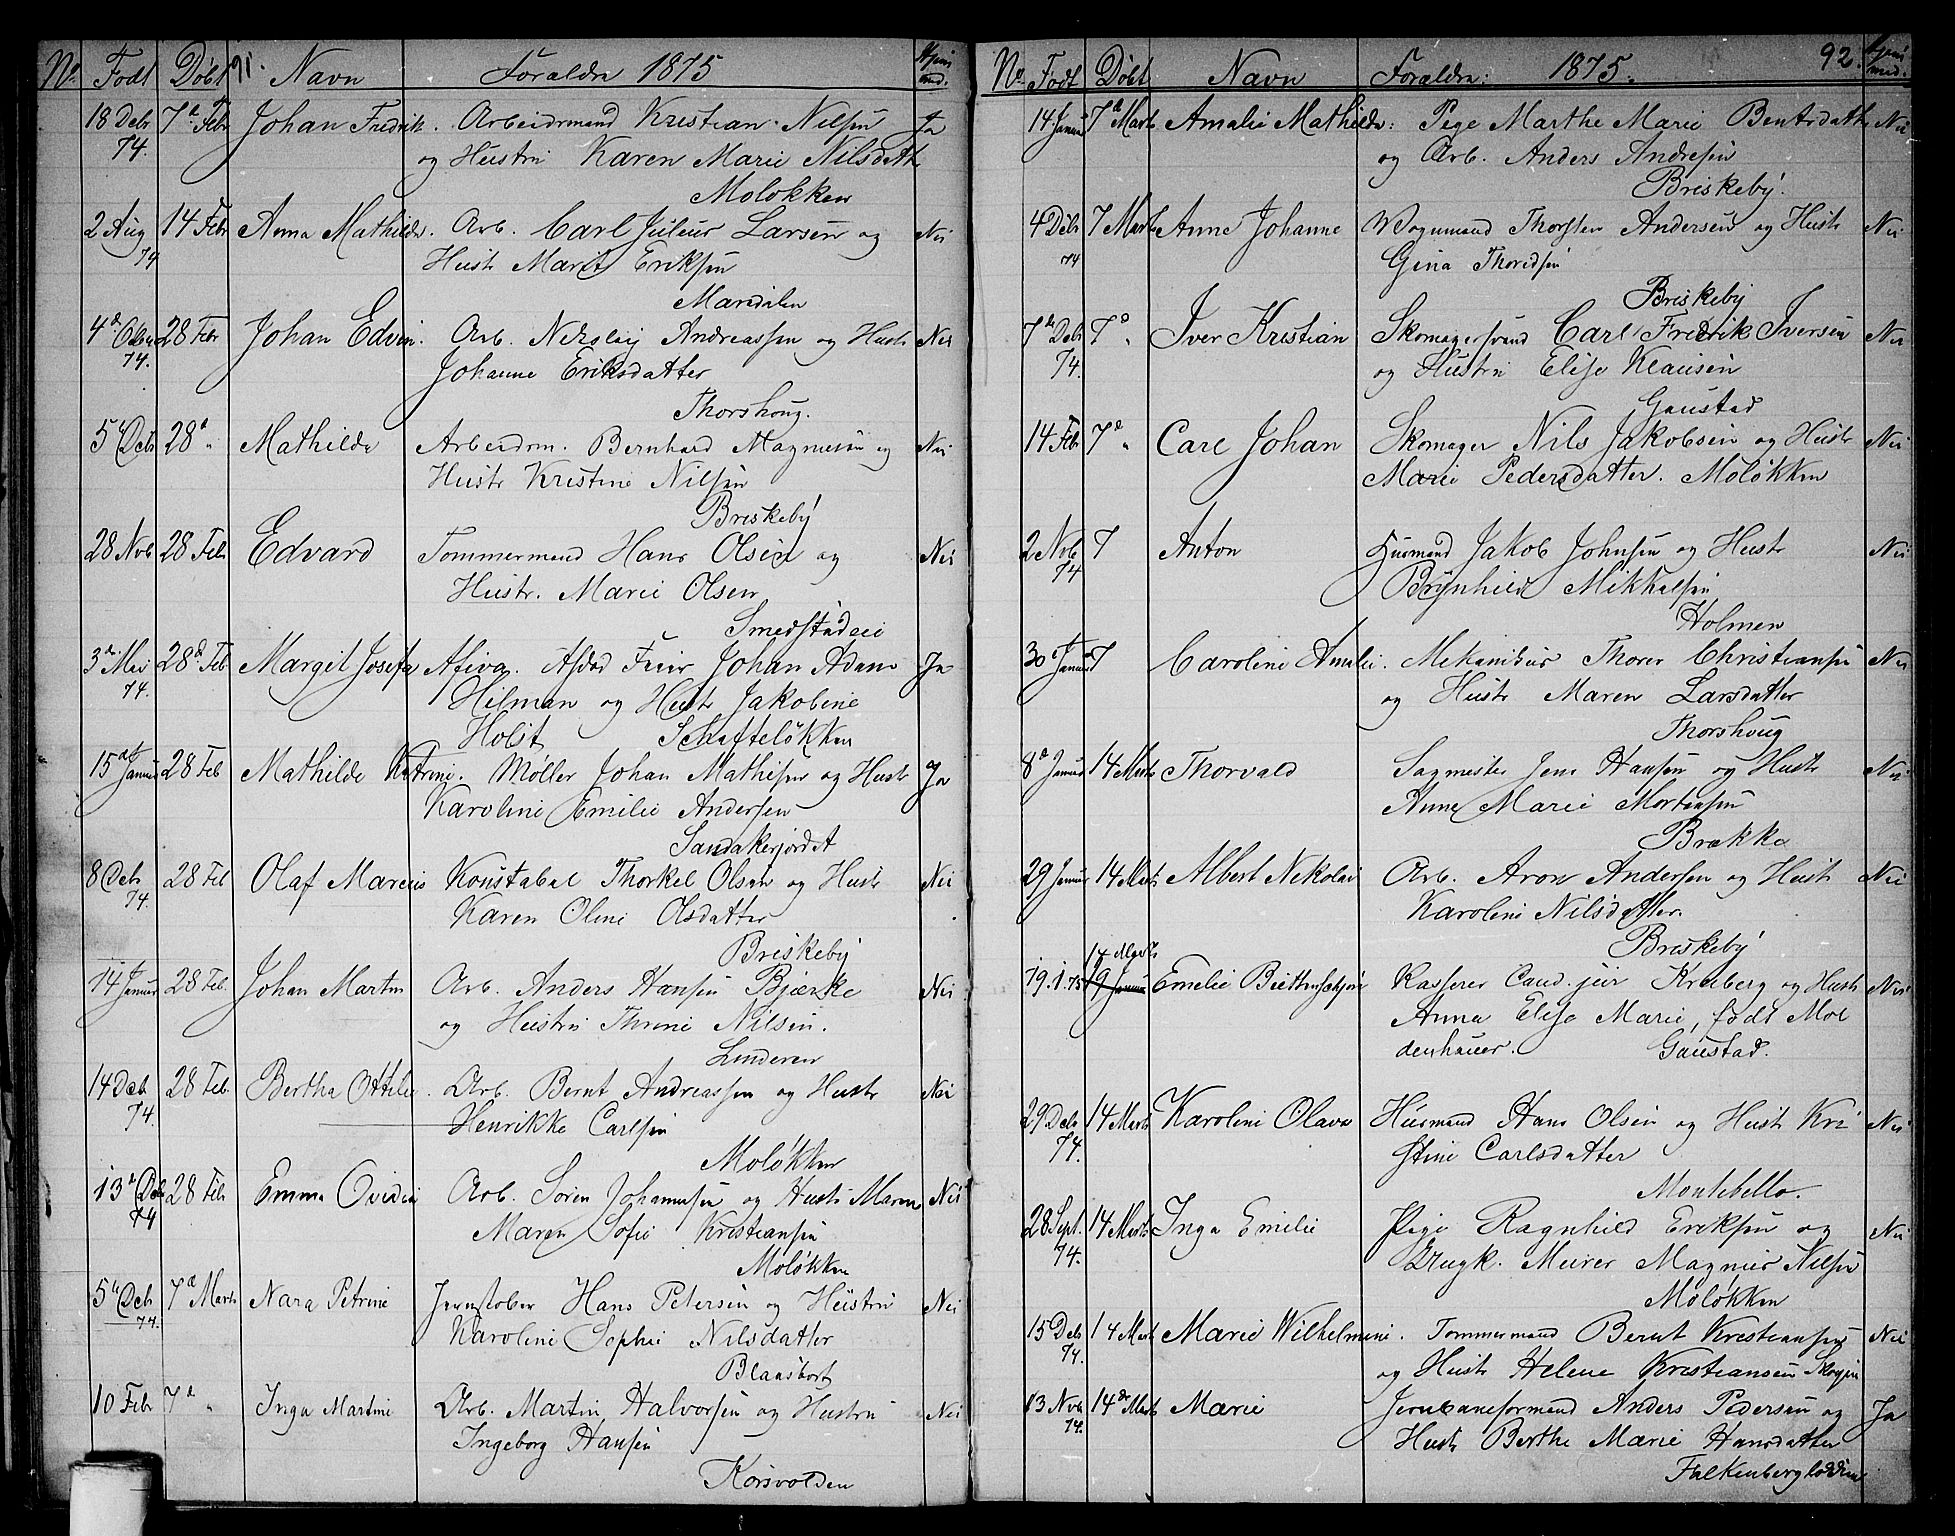 No Født Døbt 91. Navn Forældre 1875 Hjem med.
18 Debr 7d Febr Johan Fredrik. Arbeidsmand Kristian Nilsen Ja
74. og Hustru Karen Marie Nilsdatt
Moløkken
2 Aug 14 Febr Anna Mathilde. Arb. Carl Julius Larsen og Nei
74 Hust Marit Eriksen
Maridalen
28 Febr Johan Edvin. Arb. Nikolaj Andreassen og Hust Nei
74. Johanne Eriksdatter
Thorshoug.
28d " Mathilde Arbeidsm. Bernhard Magnusen og Nei
Hust Kristine Nilsen
Briskeby
28 Nvb 28 Feb Edvard Tømmermand Hans Olsen og Nei
Hustr. Marie Olsen
Smedstadeie
3d Mai 28d Feb Margit Josefa Johan Adam Ja
74. Hilman og Hust Jakobine
Holst Schafteløkken
15d Januar 28 Feb Mathilde Katrine. Møller Johan Mathisen og Hust Ja
Karoline Emilie Andersen
Sandakerjordet
8 Deb 28 Feb Olaf Marcius Konstabel Thorkel Olsen og Hust Nei
74. Karen Oline Olsdatter
Briskeby
14 Januar 28 Feb. Johan Martin Arb. Anders Hansen Bjærke Nei
og Hustru Thrine Nilsen.
Linderen
14 Deb 28 Feb. Bertha Ottilie. Arb. Bernt Andreassen og Hust Nei
74. Henrikke Carlsen
Moløkken
13d Deb 28 Feb Emma Ovidia Arb. Søren Johannesen og Hust Maren Nei
74 Maren Sofie Kristiansen
Moløkken
7d Marts Nara Petrine Jernstøber Hans Petersen og Hustru Nei
74. Karoline Sophie Nilsdatter
Blaasbort
10 Febr 7d " Inga Martine Arb. Martin Halvorsen og Hustru Nei
Ingeborg Hansen
Korsvolden
No Født Døbt Navn Forældre: 1875. 92. Hjem med.
14 Januar 7d Mart Amalie Mathilde: Pige Marthe Marie Bentsdatter Nei
og Arb. Anders Andresen
Briskeby.
4 Debr 7 Mart Anne Johanne Vognmand Thorsten Andersen og Hust Nei
74 Gina Thoridsen
Briskeby
7d Deb 7d " Iver Kristian Skomagersvend Carl Fredrik Iversen Nei
74. og Hustru Elise Klausen
Gaustad
14 Feb 7d " Carl Johan Skomager Nils Jakobsen og Hust Nei
Marie Pedersdatter. Moløkken
2 Nvb 7 Anton Husmand Jakob Johnsen og Hust Nei
74 Brynhild Mikkelsen
Holmen
30 Januar 7 Caroline Amalie. Mekanikus Thorer Christiansen Nei
og Hust Maren Larsdatter
Thorshoug
8d Januar 14 Marts Thorvald Sagmester Jens Hansen og Hust Nei
Anne Marie Mortensen
Brække
29 Januar 14 Marts Albert Nikolai Arb. Aron Andersen og Hust Nei
Karoline Nilsdatter.
Briskeby
14 Marts
19.1.75 19 Januar Emelie Kasserer Cand. jur Kraberg og Hust Nei
Anna Elise Marie, født Mol
denhauer. Gaustad.
29 Deb 14 Marts Karoline Olava Husmand Hans Olsen og Hust Kri Nei
74. stine Carlsdatter
Montebello.
28 Sept. 14 Marts Inga Emilie Pige Ragnhild Eriksen og Nei
74. Ungk. Murer Magnus Nilsen
Moløkken
15 Deb 14 Mart Marie Wilhelmine. Tømmermand Bernt Kristiansen Nei
74. og Hust Helene Kristiansen Skøyen
13 Nvb 14de Marts Marie Jernbaneformand Anders Pedersen og Ja
74. Hust Berthe Marie Hansdatter
Falkenbergløkken